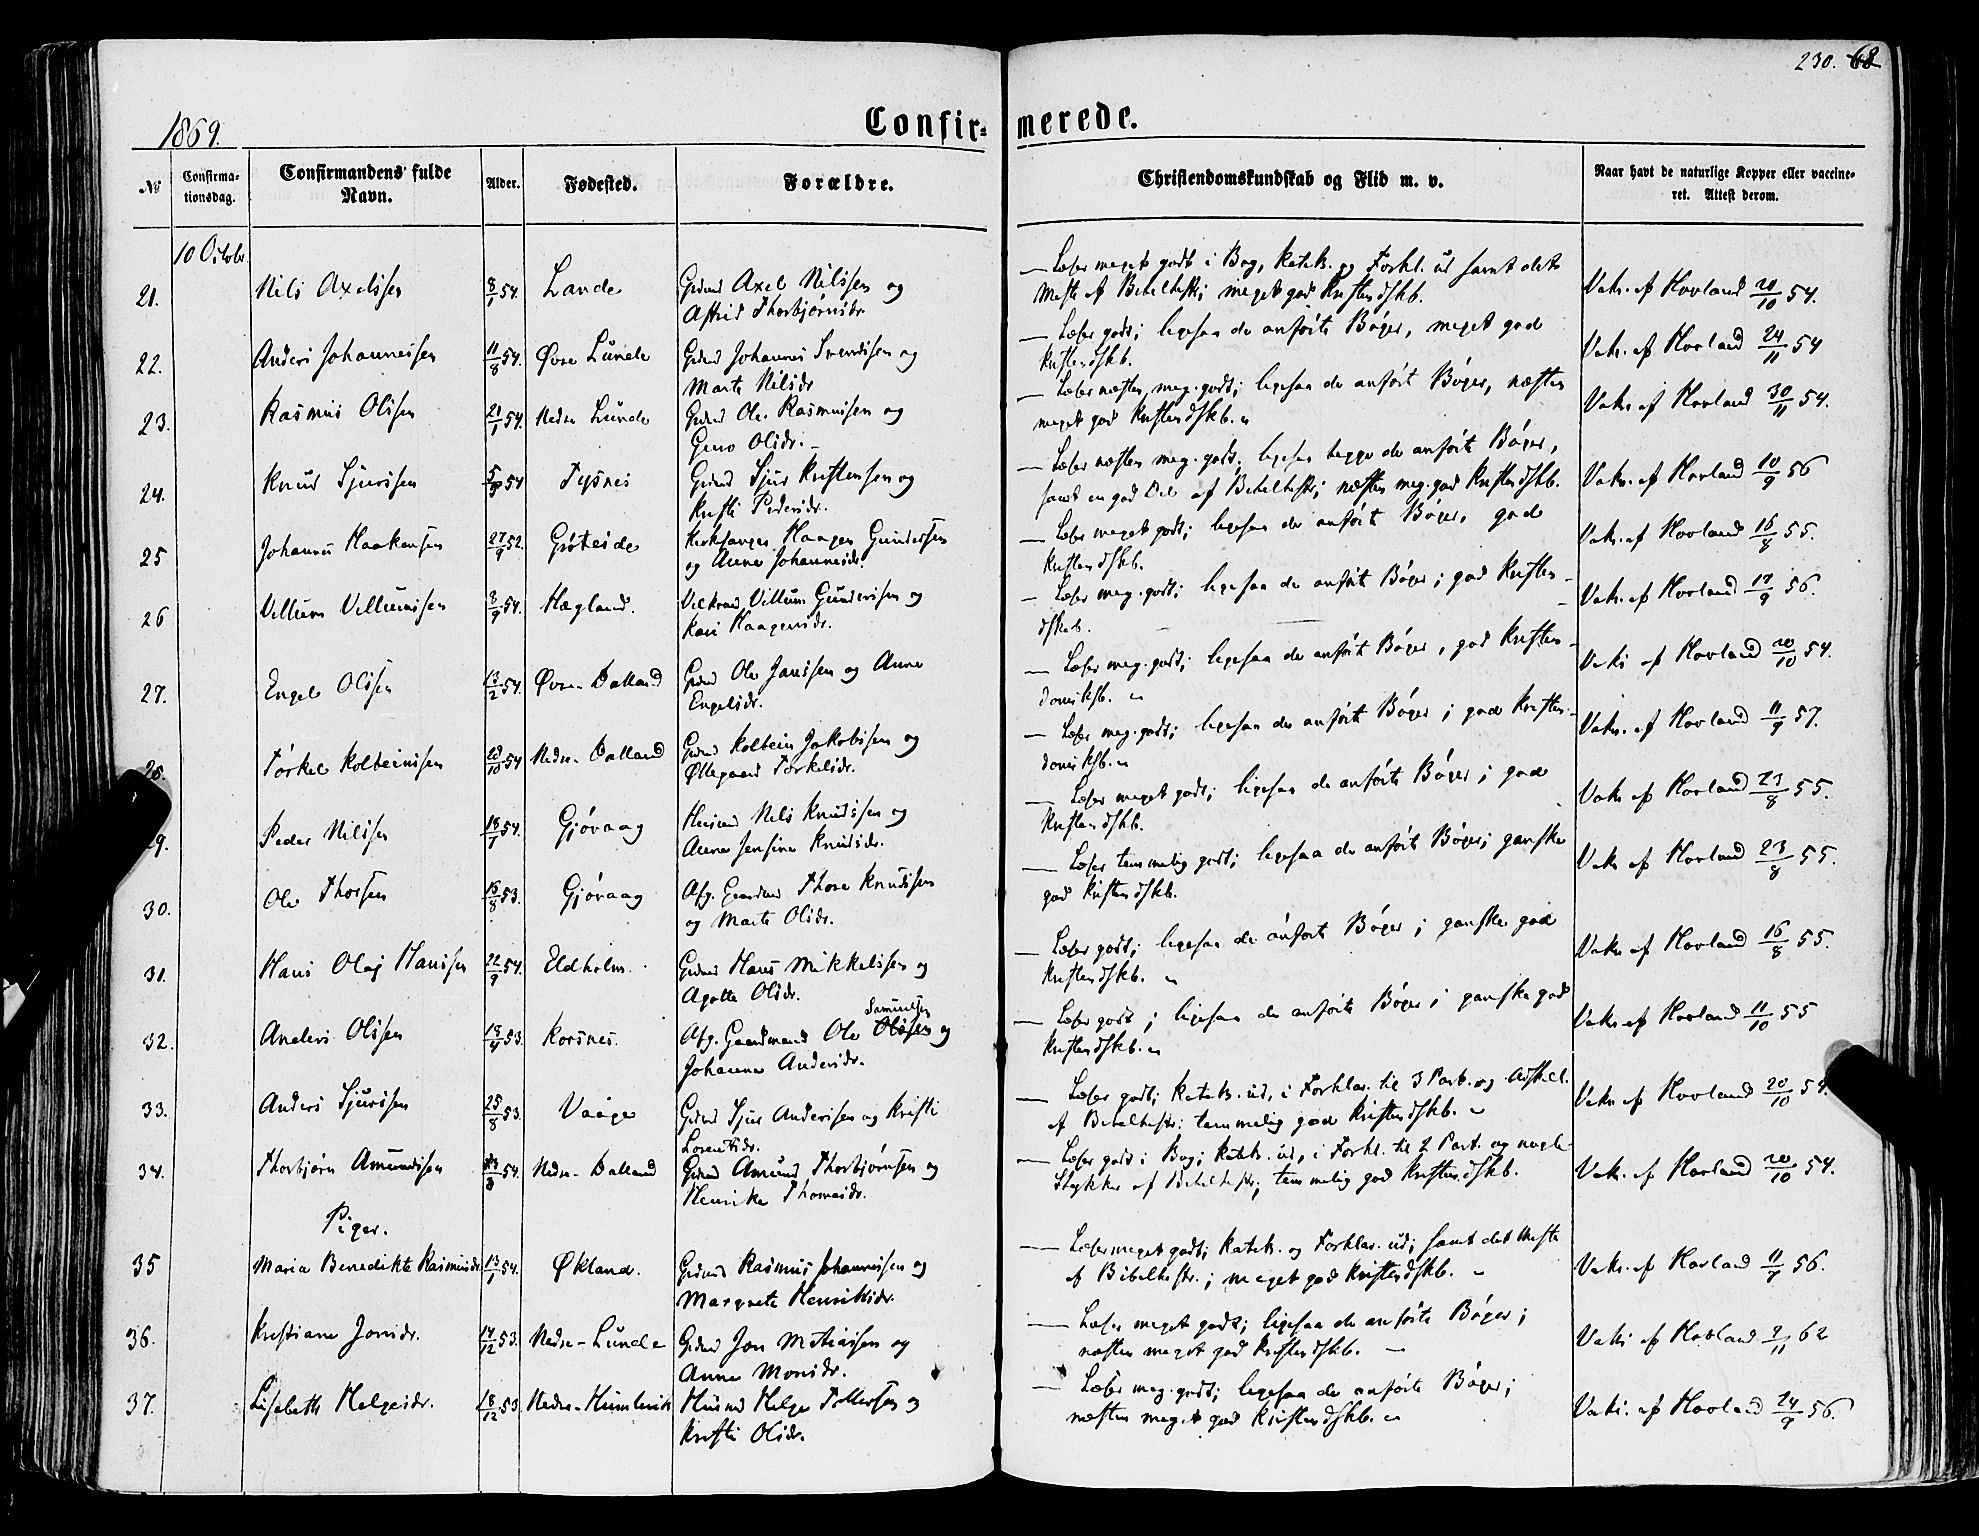 230. 68
1869.
Confir= merede.
No
Confirma-
tionsdag.
Confirmandens' fulde
Navn.
Alder.
Fødested.
Forældre.
Christendomskundskab og Flid m. v.
Naar havt de naturlige Kopper eller vaccine-
ret. Attest derom.
10 Octobr.
21. Nils Axelssen 8/1 54. Lande Grdmd Axel Nilssen og
Astrid Thorbjørnsdr.
— Læser meget godt i Bog, Katek. og Forkl. ud samt det
Meste af Bibelhist; meget god Kristendskb.
Vaks. af Hovland 20/10 54.
22. Anders Johannessen 11/8 54. Øvre Lunde Grdmd Johannes Svendssen og
Marte Nilsdr
— Læser godt; ligesaa de anførte Bøger, meget god
Kristendskb.
Vaks. af Hovland 24/11 54
23. Rasmus Olssen 21/1 54. Nedre Lunde Grdmd Ole Rasmussen og
Guro Olsdr. –
— Læser næsten meg. godt; ligesaa de anført Bøger, næsten
meget god Kristendskb. "
Vaks. af Hovland 30/11 54.
24. Knud Sjurssen 54 Tysnes Grdmd Sjur Kristensen og
Kristi Pedersdr.
— Læser næsten meg. godt; ligesaa begge de anførte Bøger,
samt en god Del af Bibelhist; næsten meg. god Kristendskb.
Vaks. af Hovland 10/9 56
25 Johannes Haakensen 27/9 52. Grøteide Kirksanger Haagen Gunderssen
og Anna Johannesdr.
— Læser meget godt; ligesaa de anførte Bøger, god
Kristendskb.
Vaks. af Hovland 16/8 55.
26 Villum Villumssen 8/9 54. Hægland. Villum Gunderssen og
Kari Haagensdr.
— Læser meg. godt; ligesaa de anførte Bøger; god Kristen-
dskab.
Vaks. af Hovland 17/9 56.
27. Engel Olssen 13/2 54. Øvre Dalland Grdmd Ole Janssen og Anna
Engelsdr.
— Læser meg. godt; ligesaa de anførte Bøger, god Kristen-
domskb. "
Vaks af Hovland 20/10 54.
28. Torkel Kolbeinssen 20/10 54 Nedre Dalland Grdmd Kolbein Jakobssen og
Øllegaard Torkelsdr.
— Læser meg. godt; ligesaa de anførte Bøger; god Kristen-
domskb. "
Vaks. af Hovland 11/9 57.
29. Peder Nilssen 18/1 54. Gjøvaag Husmd Nils Knudssen og
Anna Jensine Knudsdr.
— Læser meget godt; ligesaa de anførte Bøger; god
Kristendskb.
Vaks af Hovland 23/8 55.
30. Ole Thorssen 16/8 53. Gjøvaag Afg. Gaardmd Thore Knudssen
og Marte Olsdr.
— Læser temmelig godt; ligesaa de anført Bøger; ganske
god Kristendskb.
Vaks af Hovland 23/8 55.
31. Hans Olaj Hanssen 22/9 54. Eldholm. Grdmd Hans Mikkelssen og
Agatte Olsdr.
— Læser godt; ligesaa de anførte Bøger; ganske god
Kristendskb. "
Vaks af Hovland 16/8 55.
32. Anders Olssen 18/4 53. Korsnes. Afg. Gaardmand Ole Olssen Samuelssen og
Johanna Andersdr.
— Læser godt; ligesaa de anførte Bøger; ganske god
Kristendskb. "
Vaks af Hovland 11/10 55
33. Anders Sjurssen 25/8 53. Vaage Grdmd Sjur Anderssen og Kristi
Lorentsdr.
— Læser godt; Katek. ud, i Forklar. til 3 Part. og Adskill.
af Bibelhistr: temmelig god Kristendskb. "
Vaks. af Hovland 20/10 54.
34. Thorbjørn Amundssen 54. Nedre Dalland Grdmd Amund Thorbjørnsen og
Henrike Thomasdr.
— Læser godt i Bog; Katek. ud, i Forkl. til 2 Part. og nogle
Stykker af Bibelhistr; temmelig god Kristendskb.
Vaks. af Hovland 20/10 54.
Piger.
35 Maria Benedikte Rasmusdr. 13/1 54. Økland. Grdmd Rasmus Johannessen og
Margrete Henriksdr.
— Læser meget godt; Katek. og Forklar. ud; samt det Meste
af Bibelhistr.; meget god Kristendskb. "
Vaks. af Hovland 11/7 56.
36. Kristiane Jonsdr. 14/12 53. Nedre-Lunde Grdmd Jon Mathiassen og
Anna Monsdr.
— Læser meget godt; ligesaa de anførte Bøger;
næsten meget god Kristendskb. —
Vaks af Hovland 9/11 62
37. Lisebeth Helgesdr. 18/12 53 Nedre-Humlevik Husmd Helge Tollefsen og
Kristi Olsdr.
— Læser meg. godt; ligesaa de anførte Bøger;
næsten meget god Kristendskb. "
Vaks. af Hovland 24/9 56.